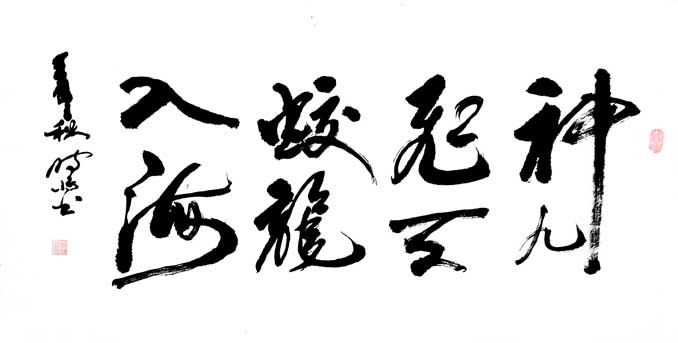 神九
飛天
蛟龍
入海
壬辰秋 書